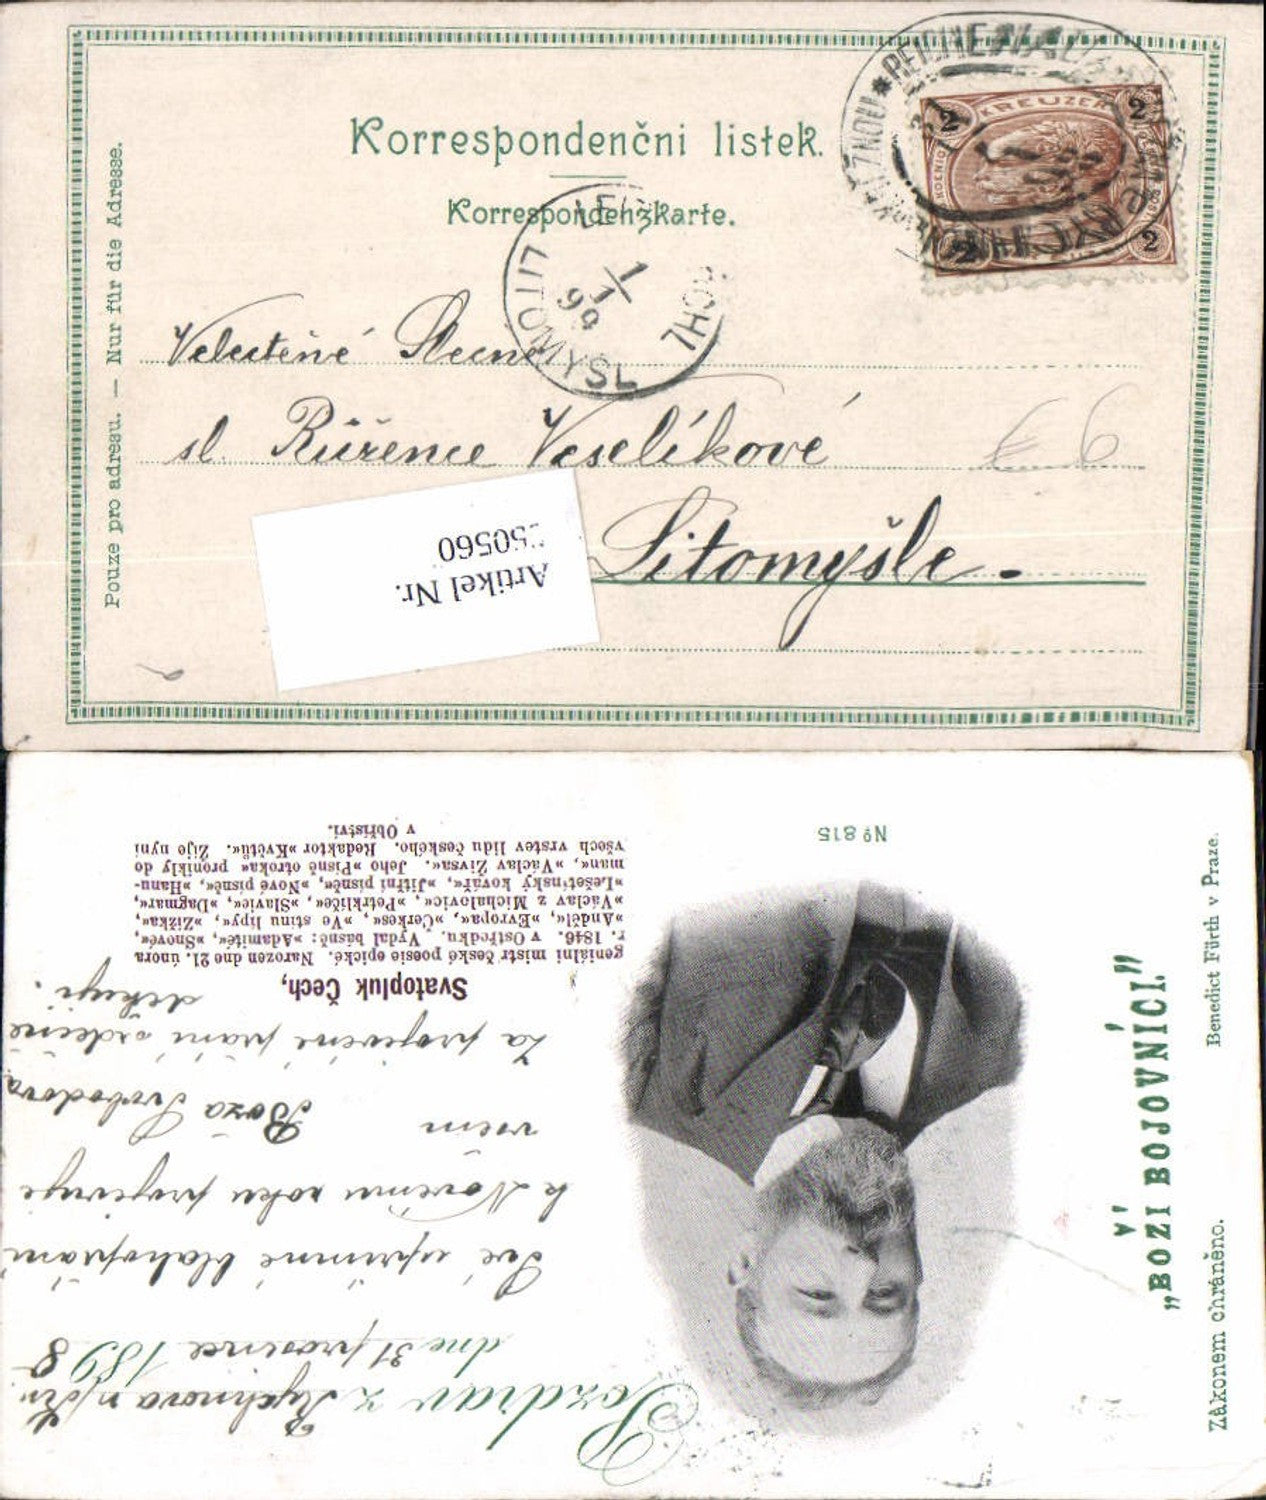 Korrespondenční lístek.
Korrespondenzkarte.
Pouze pro adresu. — Nur für die Adresse.
2 KREUZER 2
2 2
LITOMYŠL
1/1 99
Velectěné Slečně
sl. Růžence Veselíkové
€ 6
Litomyšle.
Artikel Nr.
50560
Pozdrav z Rychnova n/Kn
dne 31 prosince 1898
Své upřímné blahopřání
k Novému roku projevuje
všem Boža Svobodová
Za projevené přání srdečně
děkuji.
Svatopluk Čech,
geniální mistr české poesie epické. Narozen dne 21. února
r. 1846. v Ostředku. Vydal básně: »Adamité«, »Snové«,
»Anděl«, »Evropa«, »Čerkes«, »Ve stínu lípy«, »Žižka«,
»Václav z Michalovic«, »Petrklíče«, »Slavie«, »Dagmar«,
»Lešetínský kovář«, »Jitřní písně«, »Nové písně«, »Hanu-
man«, »Václav Živsa«. Jeho »Písně otroka« pronikly do
všech vrstev lidu českého. Redaktor »Květů«. Žije nyní
v Obříství.
Nº 815
„BOŽÍ BOJOVNÍCI.”
V
Zákonem chráněno.
Benedict Fürth v Praze.